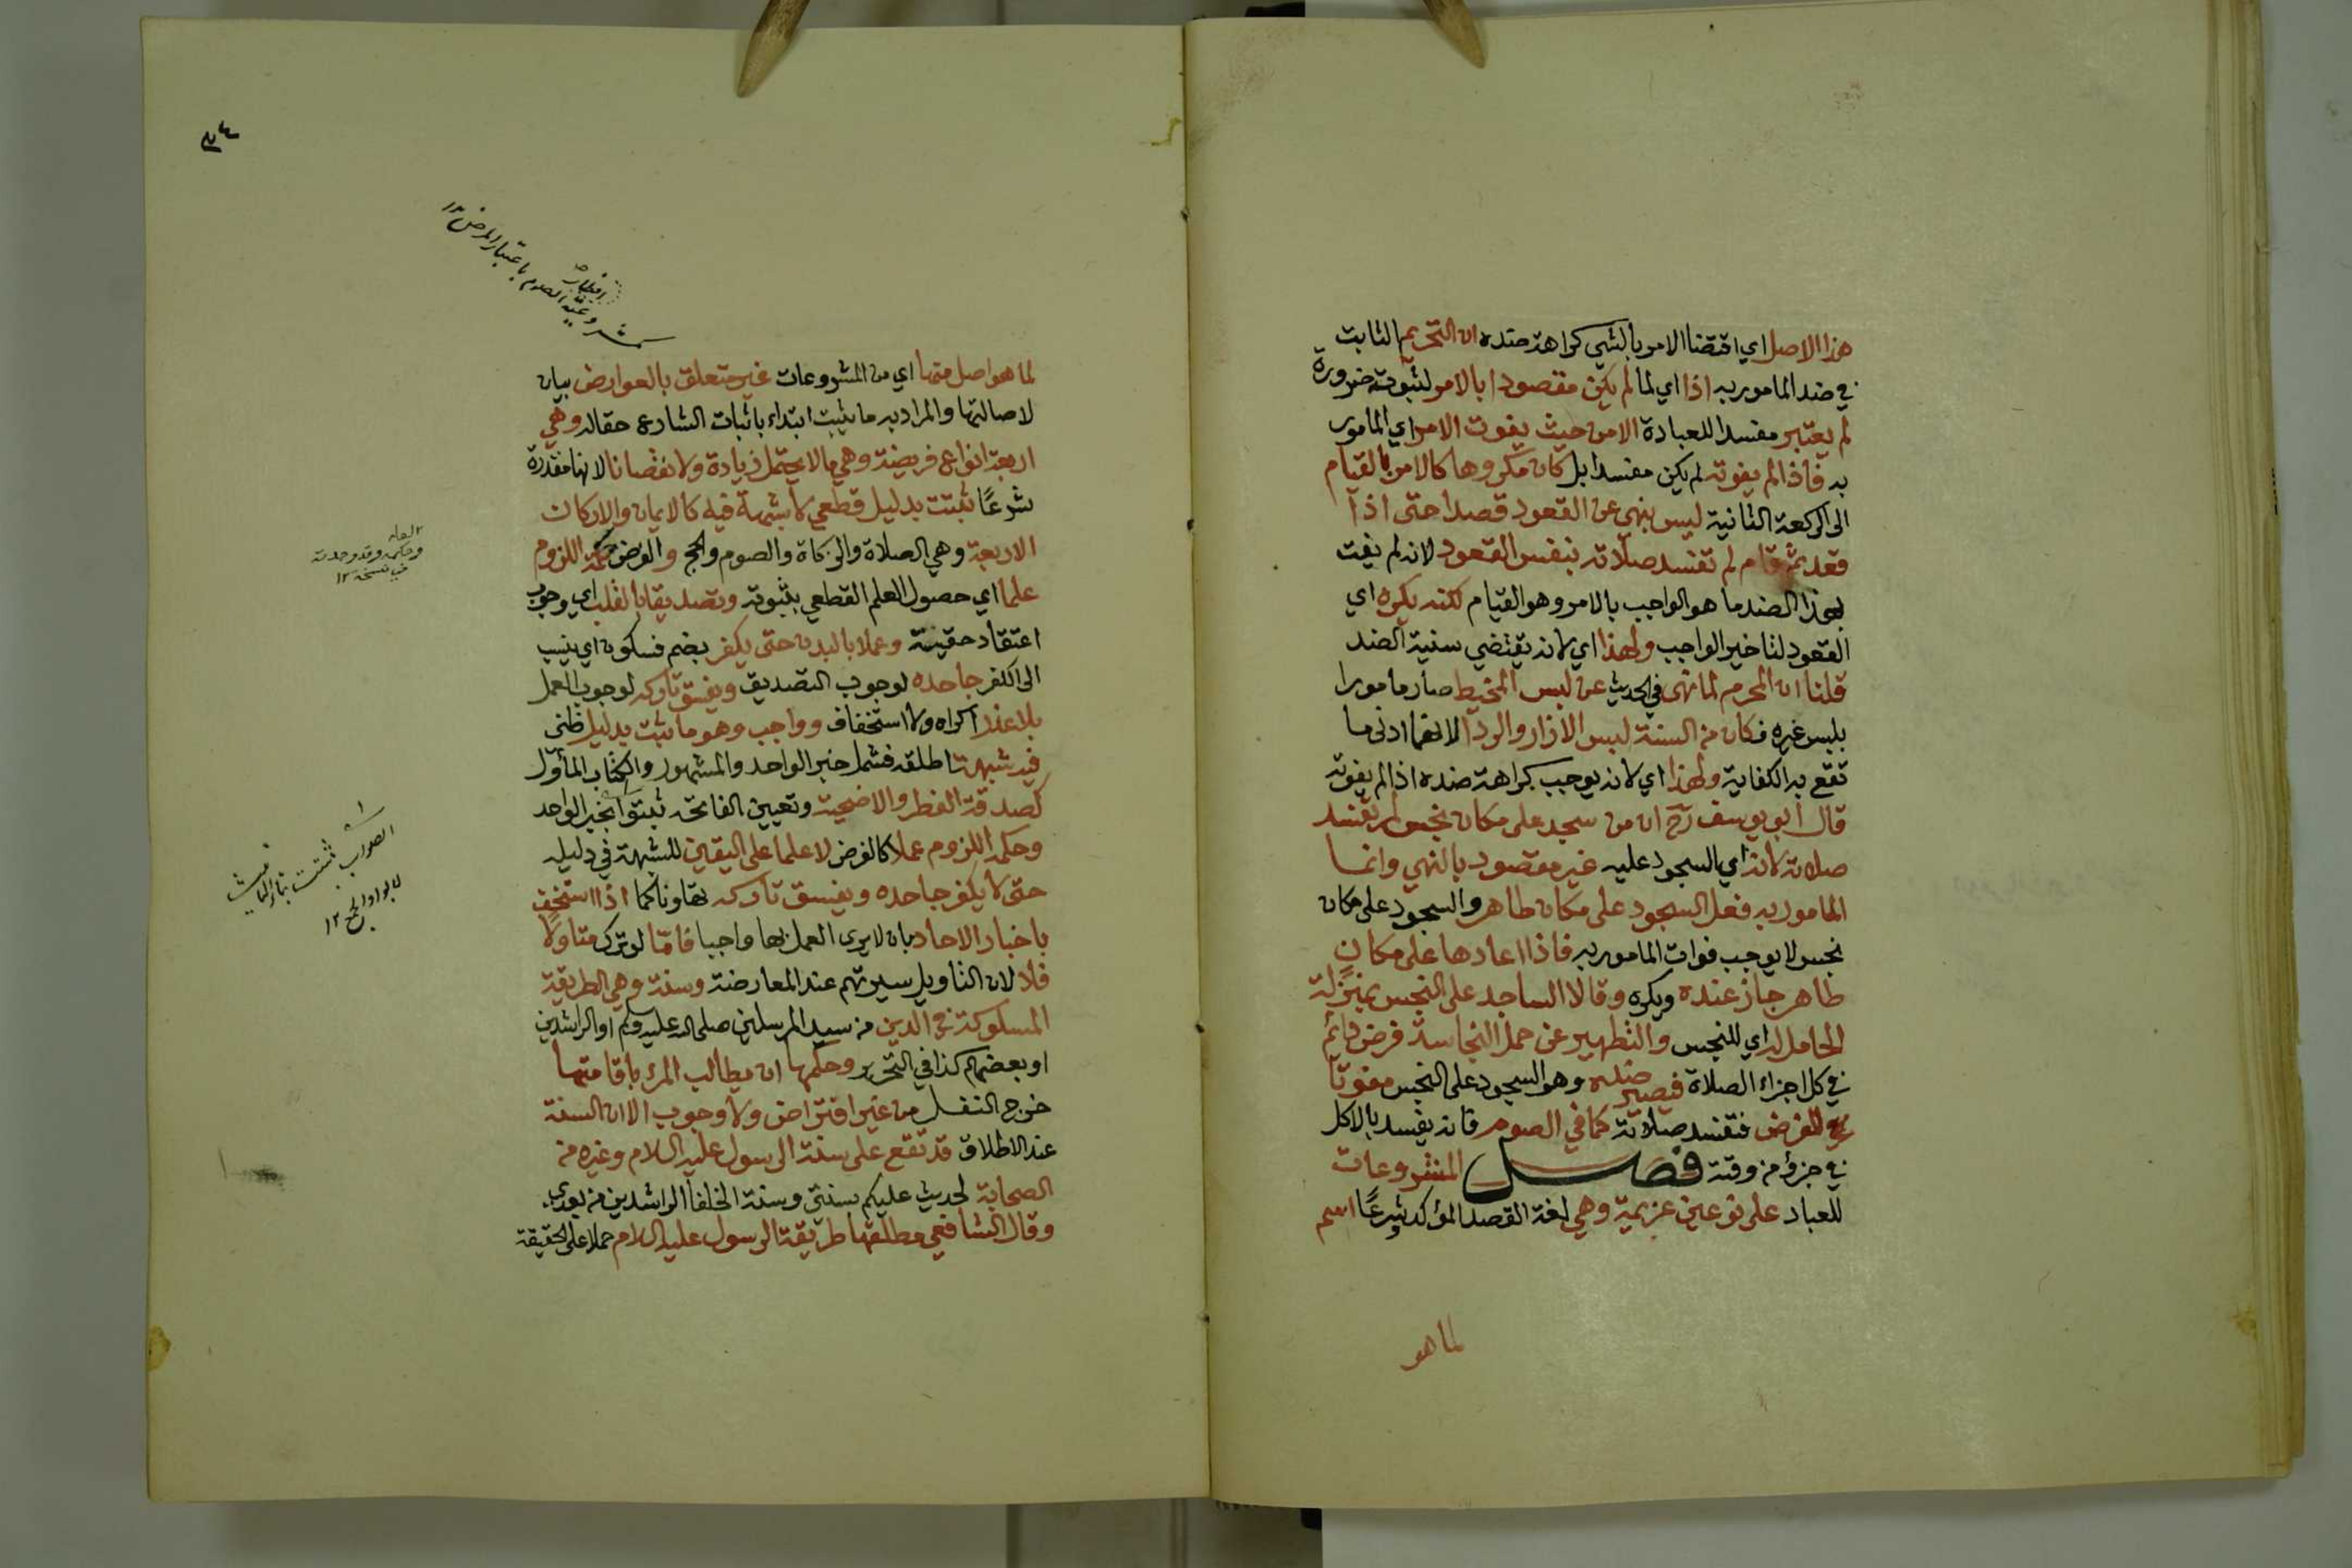 هذا الاصل اي اقتضا الامر بالشي كراهة ضده ان التحريم الثابت
في ضد المامور به اذا اي لما لم يكن مقصودا بالامر لثبوته ضرورة
لم يعتبر مفسدا للعبادة الا من حيث يفوت الامر اي المامور
به فاذا لم يفوته لم يكن مفسدا بل كان مكروها كالامر بالقيام
الى الركعة الثانية ليس بنهي عن القعود قصدا حتى اذا
قعد ثم قام لم تفسد صلاته بنفس القعود لانه لم يفت
بهذا الضد ما هو الواجب بالامر وهو القيام لكنه يكره اي
القعود لتاخير الواجب ولهذا اي لانه يقتضي سنية الضد
قلنا ان المحرم لما نهى في الحديث عن لبس المخيط صار مامورا
بلبس غيره فكان من السنة لبس الازار والردا لانهما ادنى ما
تقع به الكفاية ولهذا اي لانه يوجب كراهة ضده اذا لم يفوته
قال ابو يوسف رح ان من سجد على مكان نجس لم تفسد
صلاته لانه اي السجود عليه غير مقصود بالنهي وانما
المامور به فعل السجود على مكان طاهر والسجود على مكان
نجس لا يوجب فوات المامور به فاذا اعادها على مكان
طاهر جاز عنده ويكره وقالا الساجد على النجس بمنزلة
الحامل له اي للنجس والتطهير عن حمل النجاسة فرض دائم
في كل اجزاء الصلاة فيصير ضده وهو السجود على النجس مفوتا
للفرض فتفسد صلاته كما في الصوم فانه يفسد بالاكل
في جزؤ من وقته فصل المشروعات
للعباد على نوعين عزيمة وهي لغة القصد المؤكد وشرعًا اسم
لما هو
٣٤
افطار
مشروعية الصوم باعتبار المرض ١٢
لما هو اصل منها اي من المشروعات غير متعلق بالعوارض بيان
لاصالتها والمراد به ما يثبت ابتداء باثبات الشارع حقا له وهي
اربعة انواع فريضة وهي ما لا يحتمل زيادة ولا نقصانا لانها مقدرة
شرعًا ثبتت بدليل قطعي لا شبهة فيه كالايمان والاركان
الاربعة وهي الصلاة والزكاة والصوم والحج والفرض حكمه اللزوم
علما اي حصول العلم القطعي بثبوته وتصديقا بالقلب اي وجوب
اعتقاد حقيته وعملا بالبدن حتى يكفر بضم فسكون اي ينسب
الى الكفر جاحده لوجوب التصديق ويفسق تاركه لوجوب العمل
بلا عذر اكراه ولا استخفاف وواجب وهو ما ثبت بدليل ظني
فيه شبهة اطلقه فشمل خبر الواحد والمشهور والكتاب المأول
كصدقة الفطر والاضحية وتعيين الفاتحة ثبتوا بخبر الواحد
وحكمه اللزوم عملا كالفرض لا علما على اليقين للشبهة في دليله
حتى لا يكفر جاحده ويفسق تاركه تهاونا كما اذا استخف
باخبار الاحاد بان لا يرى العمل بها واجبا فامّا لو ترك متاولا
فلا لان التاويل سيرتهم عند المعارضة وسنة وهي الطريقة
المسلوكة في الدين من سيد المرسلين صلى الله عليه وسلم او الراشدين
او بعضهم كذا في التحرير وحكمها ان يطالب المرء باقامتها
خرج النفل من غير افتراض ولا وجوب الا ان السنة
عند الاطلاق قد تقع على سنة الرسول عليه السلام وغيره من
الصحابة لحديث عليكم بسنتي وسنة الخلفا الراشدين من بعدي
وقال الشافعي مطلقها طريقة الرسول عليه السلام حملا على الحقيقة
وحكمه وقد وجدته
في نسخة ١٢
الصواب ثبتت بتاء التانيث
لا بواو الجمع ١٢